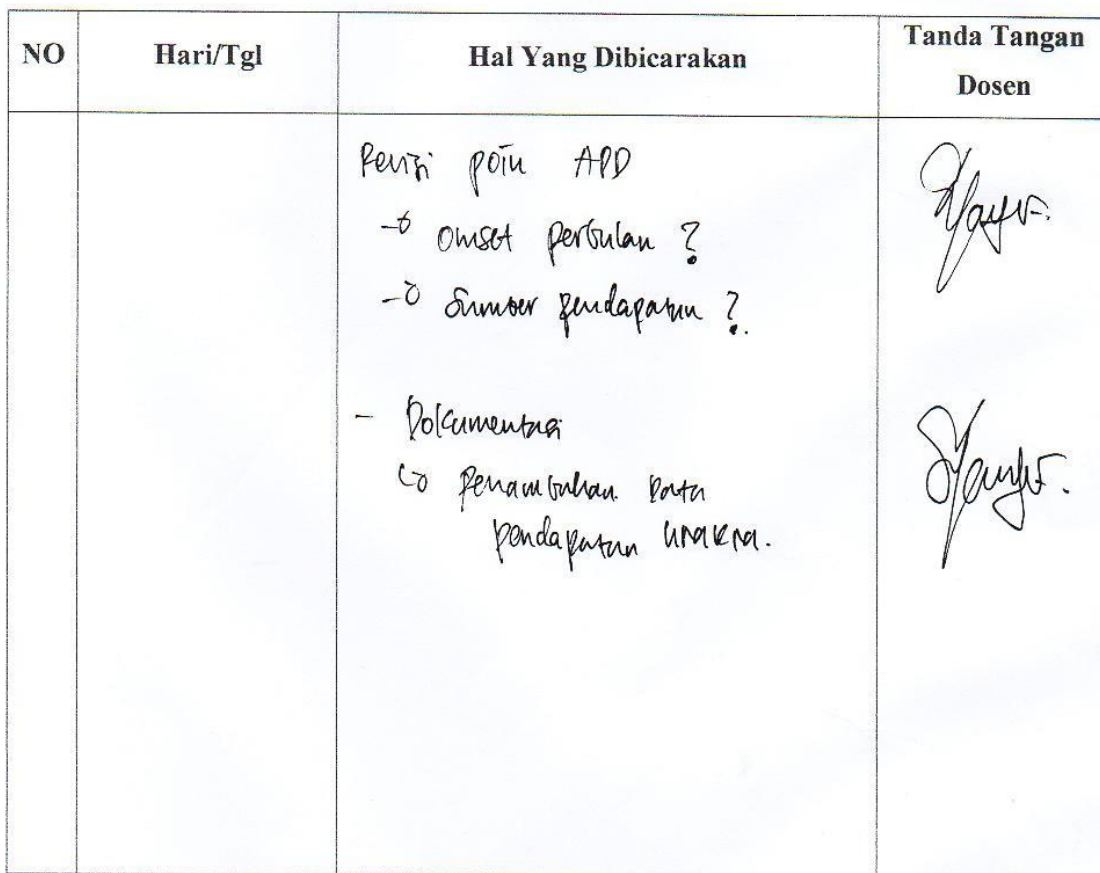 NO Hari/Tgl Hal Yang Dibicarakan Tanda Tangan
Dosen
Revisi poin APD
→ Omset perbulan ?
→ Sumber pendapatan ?
- Dokumentasi
↳ Penambahan Data
pendapatan